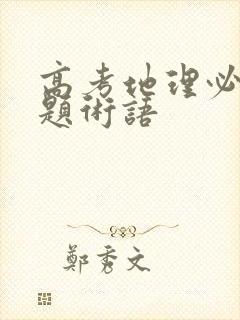 高考地理必
題術語
鄭秀文